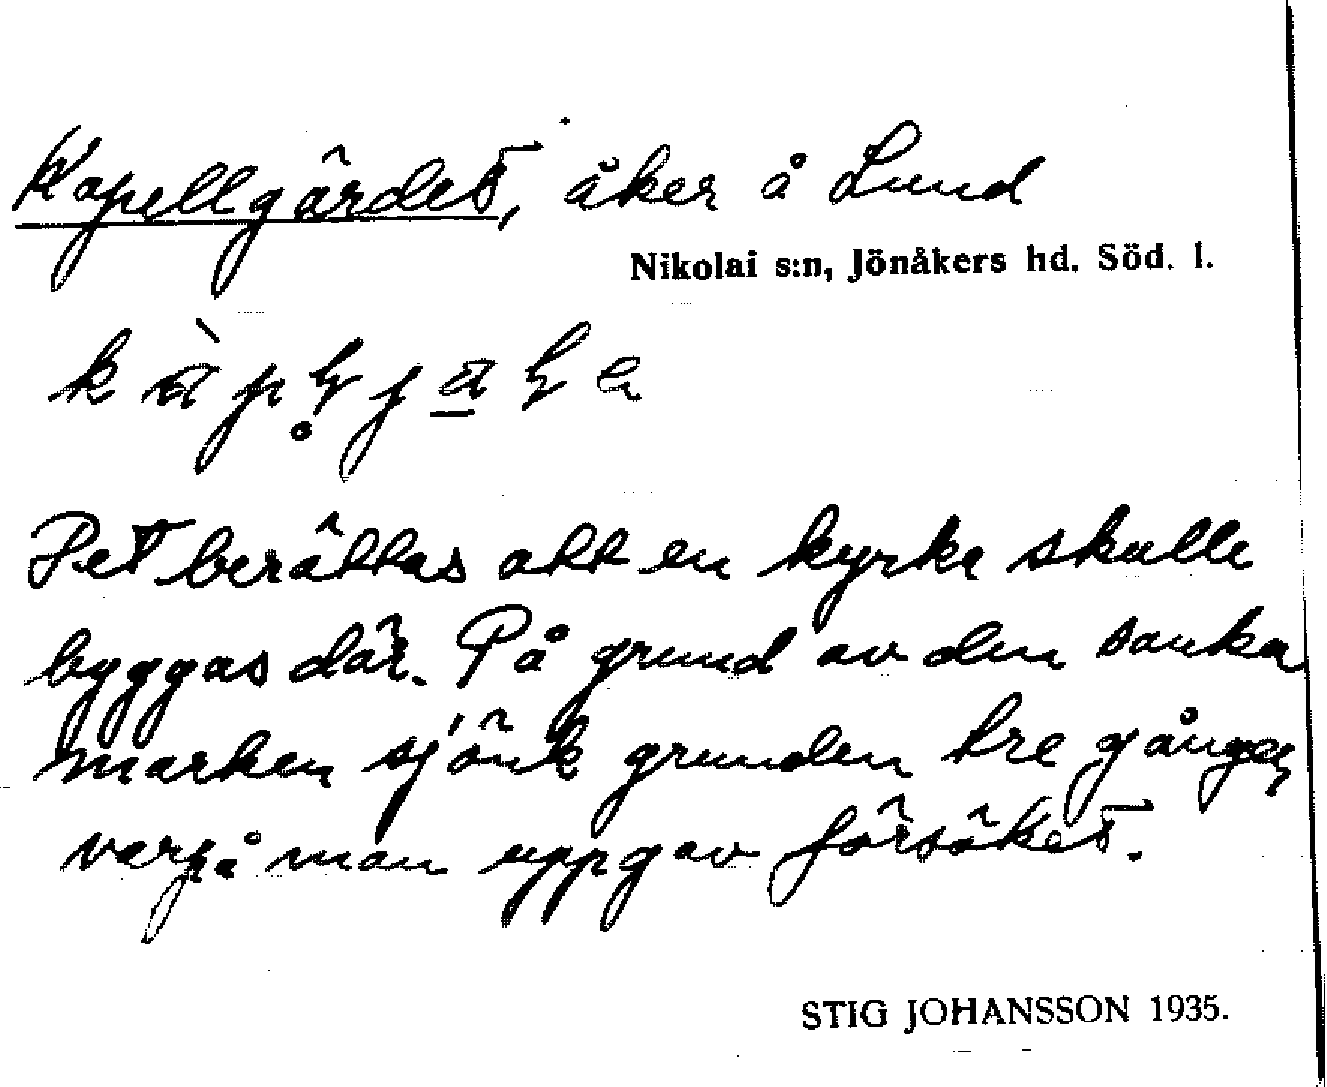 Kapellgärdet, åker å Lund
Nikolai s:n, Jönåkers hd. Söd. l.
Det berättas att en kyrka skulle
byggas där. På grund av den sanka
marken sjönk grunden tre gånger,
varpå man uppgav försöket.
STIG JOHANSSON 1935.